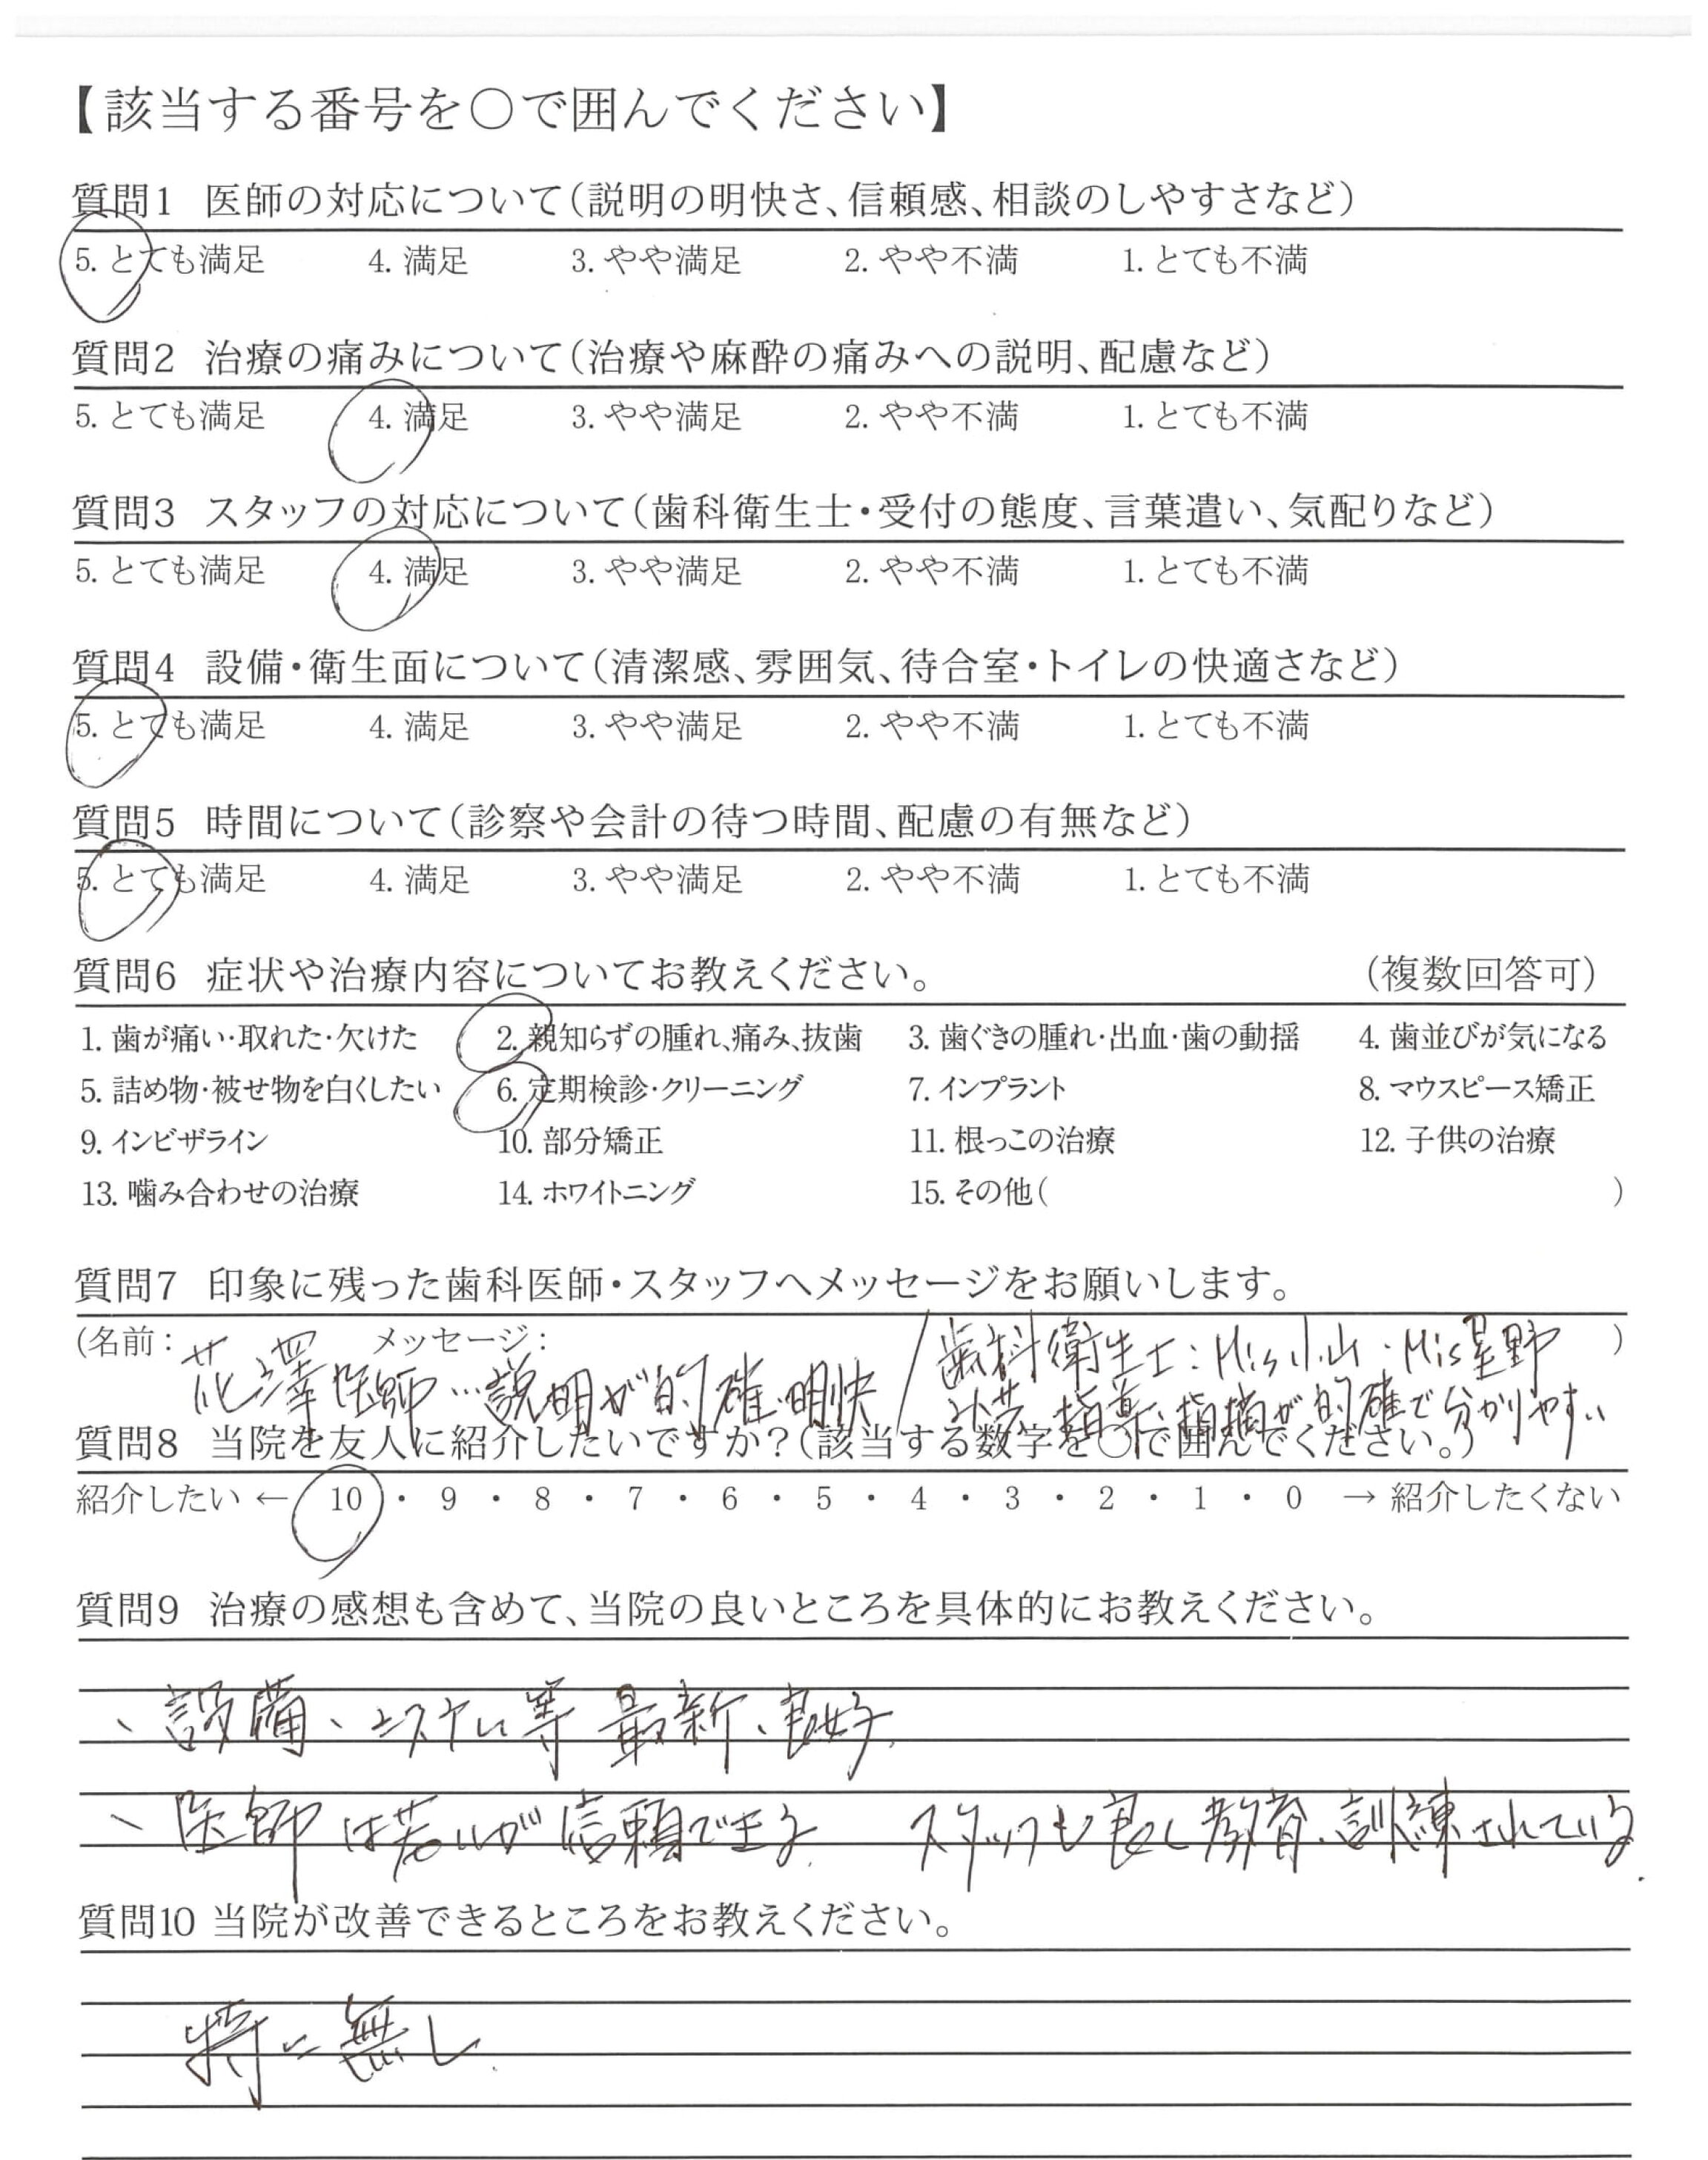 【該当する番号を○で囲んでください】
質問1 医師の対応について(説明の明快さ、信頼感、相談のしやすさなど)
5. とても満足 4. 満足 3. やや満足 2. やや不満 1. とても不満
質問2 治療の痛みについて(治療や麻酔の痛みへの説明、配慮など)
5. とても満足 4. 満足 3. やや満足 2. やや不満 1. とても不満
質問3 スタッフの対応について(歯科衛生士・受付の態度、言葉遣い、気配りなど)
5. とても満足 4. 満足 3. やや満足 2. やや不満 1. とても不満
質問4 設備・衛生面について(清潔感、雰囲気、待合室・トイレの快適さなど)
5. とても満足 4. 満足 3. やや満足 2. やや不満 1. とても不満
質問5 時間について(診察や会計の待つ時間、配慮の有無など)
5. とても満足 4. 満足 3. やや満足 2. やや不満 1. とても不満
質問6 症状や治療内容についてお教えください。 (複数回答可)
1. 歯が痛い・取れた・欠けた 2. 親知らずの腫れ、痛み、抜歯 3. 歯ぐきの腫れ・出血・歯の動揺 4. 歯並びが気になる
5. 詰め物・被せ物を白くしたい 6. 定期検診・クリーニング 7. インプラント 8. マウスピース矯正
9. インビザライン 10. 部分矯正 11. 根っこの治療 12. 子供の治療
13. 噛み合わせの治療 14. ホワイトニング 15. その他( )
質問7 印象に残った歯科医師・スタッフへメッセージをお願いします。
(名前: メッセージ: )
花澤医師…説明が的確・明快 / 歯科衛生士:Mis小山・Mis星野
指導、指摘が的確で分かりやすい
質問8 当院を友人に紹介したいですか?(該当する数字を○で囲んでください。)
紹介したい ← 10 ・ 9 ・ 8 ・ 7 ・ 6 ・ 5 ・ 4 ・ 3 ・ 2 ・ 1 ・ 0 → 紹介したくない
質問9 治療の感想も含めて、当院の良いところを具体的にお教えください。
、設備、システム等 最新、良好.
、医師は若いが信頼できる. スタッフも良く教育、訓練されている.
質問10 当院が改善できるところをお教えください。
特に無し.